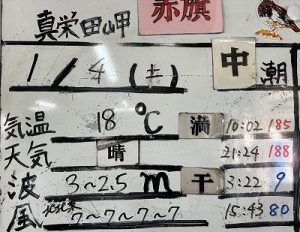 真栄田岬 赤旗
1/4(土) 中 潮
気温 18℃ 満 10:02 185
天気 晴 21:24 188
波 3~2.5m 干 3:22 9
風 7~7~7~7 15:43 80